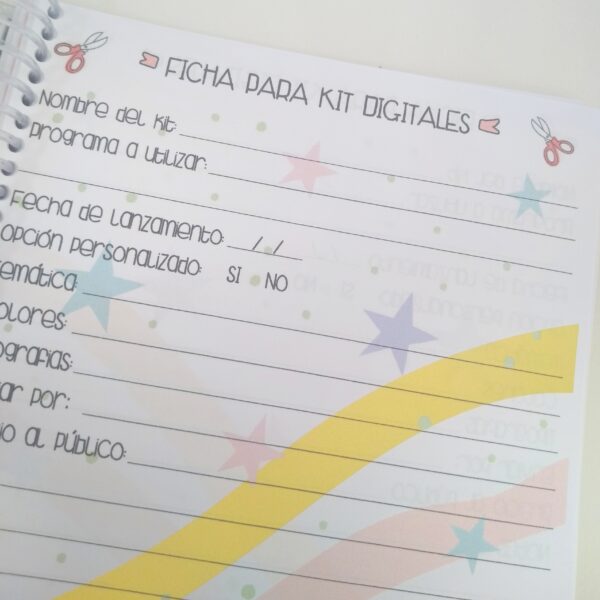 FICHA PARA KIT DIGITALES
Nombre del Kit:
Programa a utilizar:
Fecha de Lanzamiento: / /
opción personalizado: SI NO
temática:
olores:
ografias:
ar por:
io al público: